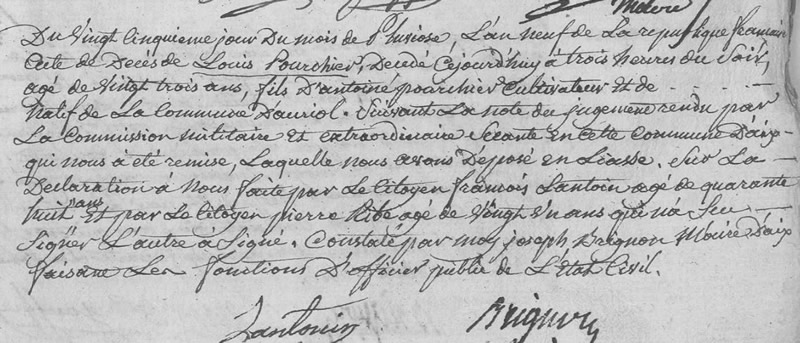 Maire
Du Vingt Cinquieme jour Du mois de Pluviose, L'an neuf de La republique francaise
Acte de Decès de Louis Pourchier, Decedé Cejourd'huy à trois heures du Soir,
agé de Vingt trois ans, fils D'antoine pourchier Cultivateur Et de - - - - -
Natif de La Commune D'auriol. Suivant La note du jugement rendu par
La Commission militaire Et extraordinaire Seeante En Cette Commune D'aix
qui nous à été remise, Laquelle nous avons Deposé en Liasse. Sur La
Declaration à Nous faite par Le Citoyen francois Lantoin agé de quarante
huit ans Et par Le Citoyen pierre Ribe agé de Vingt Un ans qui na Seu
Signer L'autre à Signé. Constaté par moy joseph Brignon Maire D'aix
faisant Les fonctions D'officier public de L'Etat Civil.
Lantoin Brignon